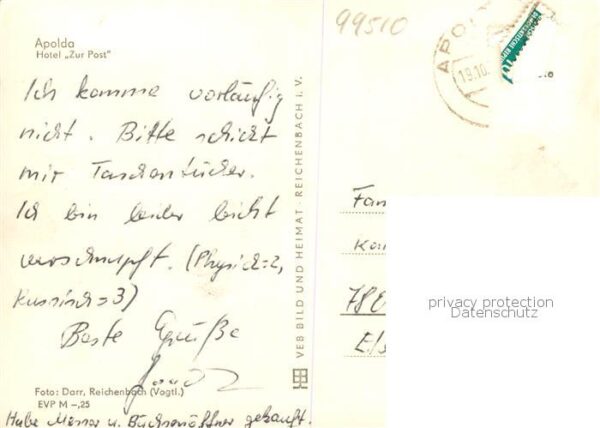 Apolda
Hotel „Zur Post"
Ich komme vorläufig
nicht. Bitte schickt
mir Taschentücher.
Ich bin leider leicht
verschnupft. (Physik=2,
Russisch=3)
Beste Grüße
Foto: Darr, Reichenbach (Vogtl.)
EVP M –,25
Habe Messer u. Büchsenöffner gekauft.
VEB BILD UND HEIMAT · REICHENBACH I. V.
99510
APOL
19.10.
Fam
78
privacy protection
Datenschutz